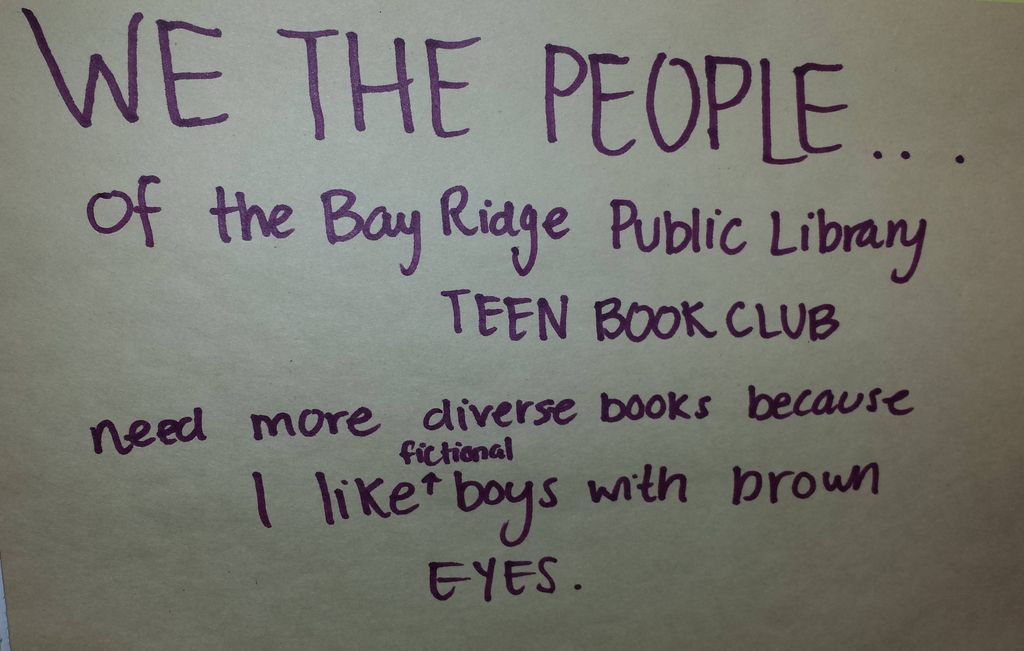 WE THE PEOPLE...
of the Bay Ridge Public Library
TEEN BOOK CLUB
need more diverse books because
fictional
I like↑boys with brown
EYES.